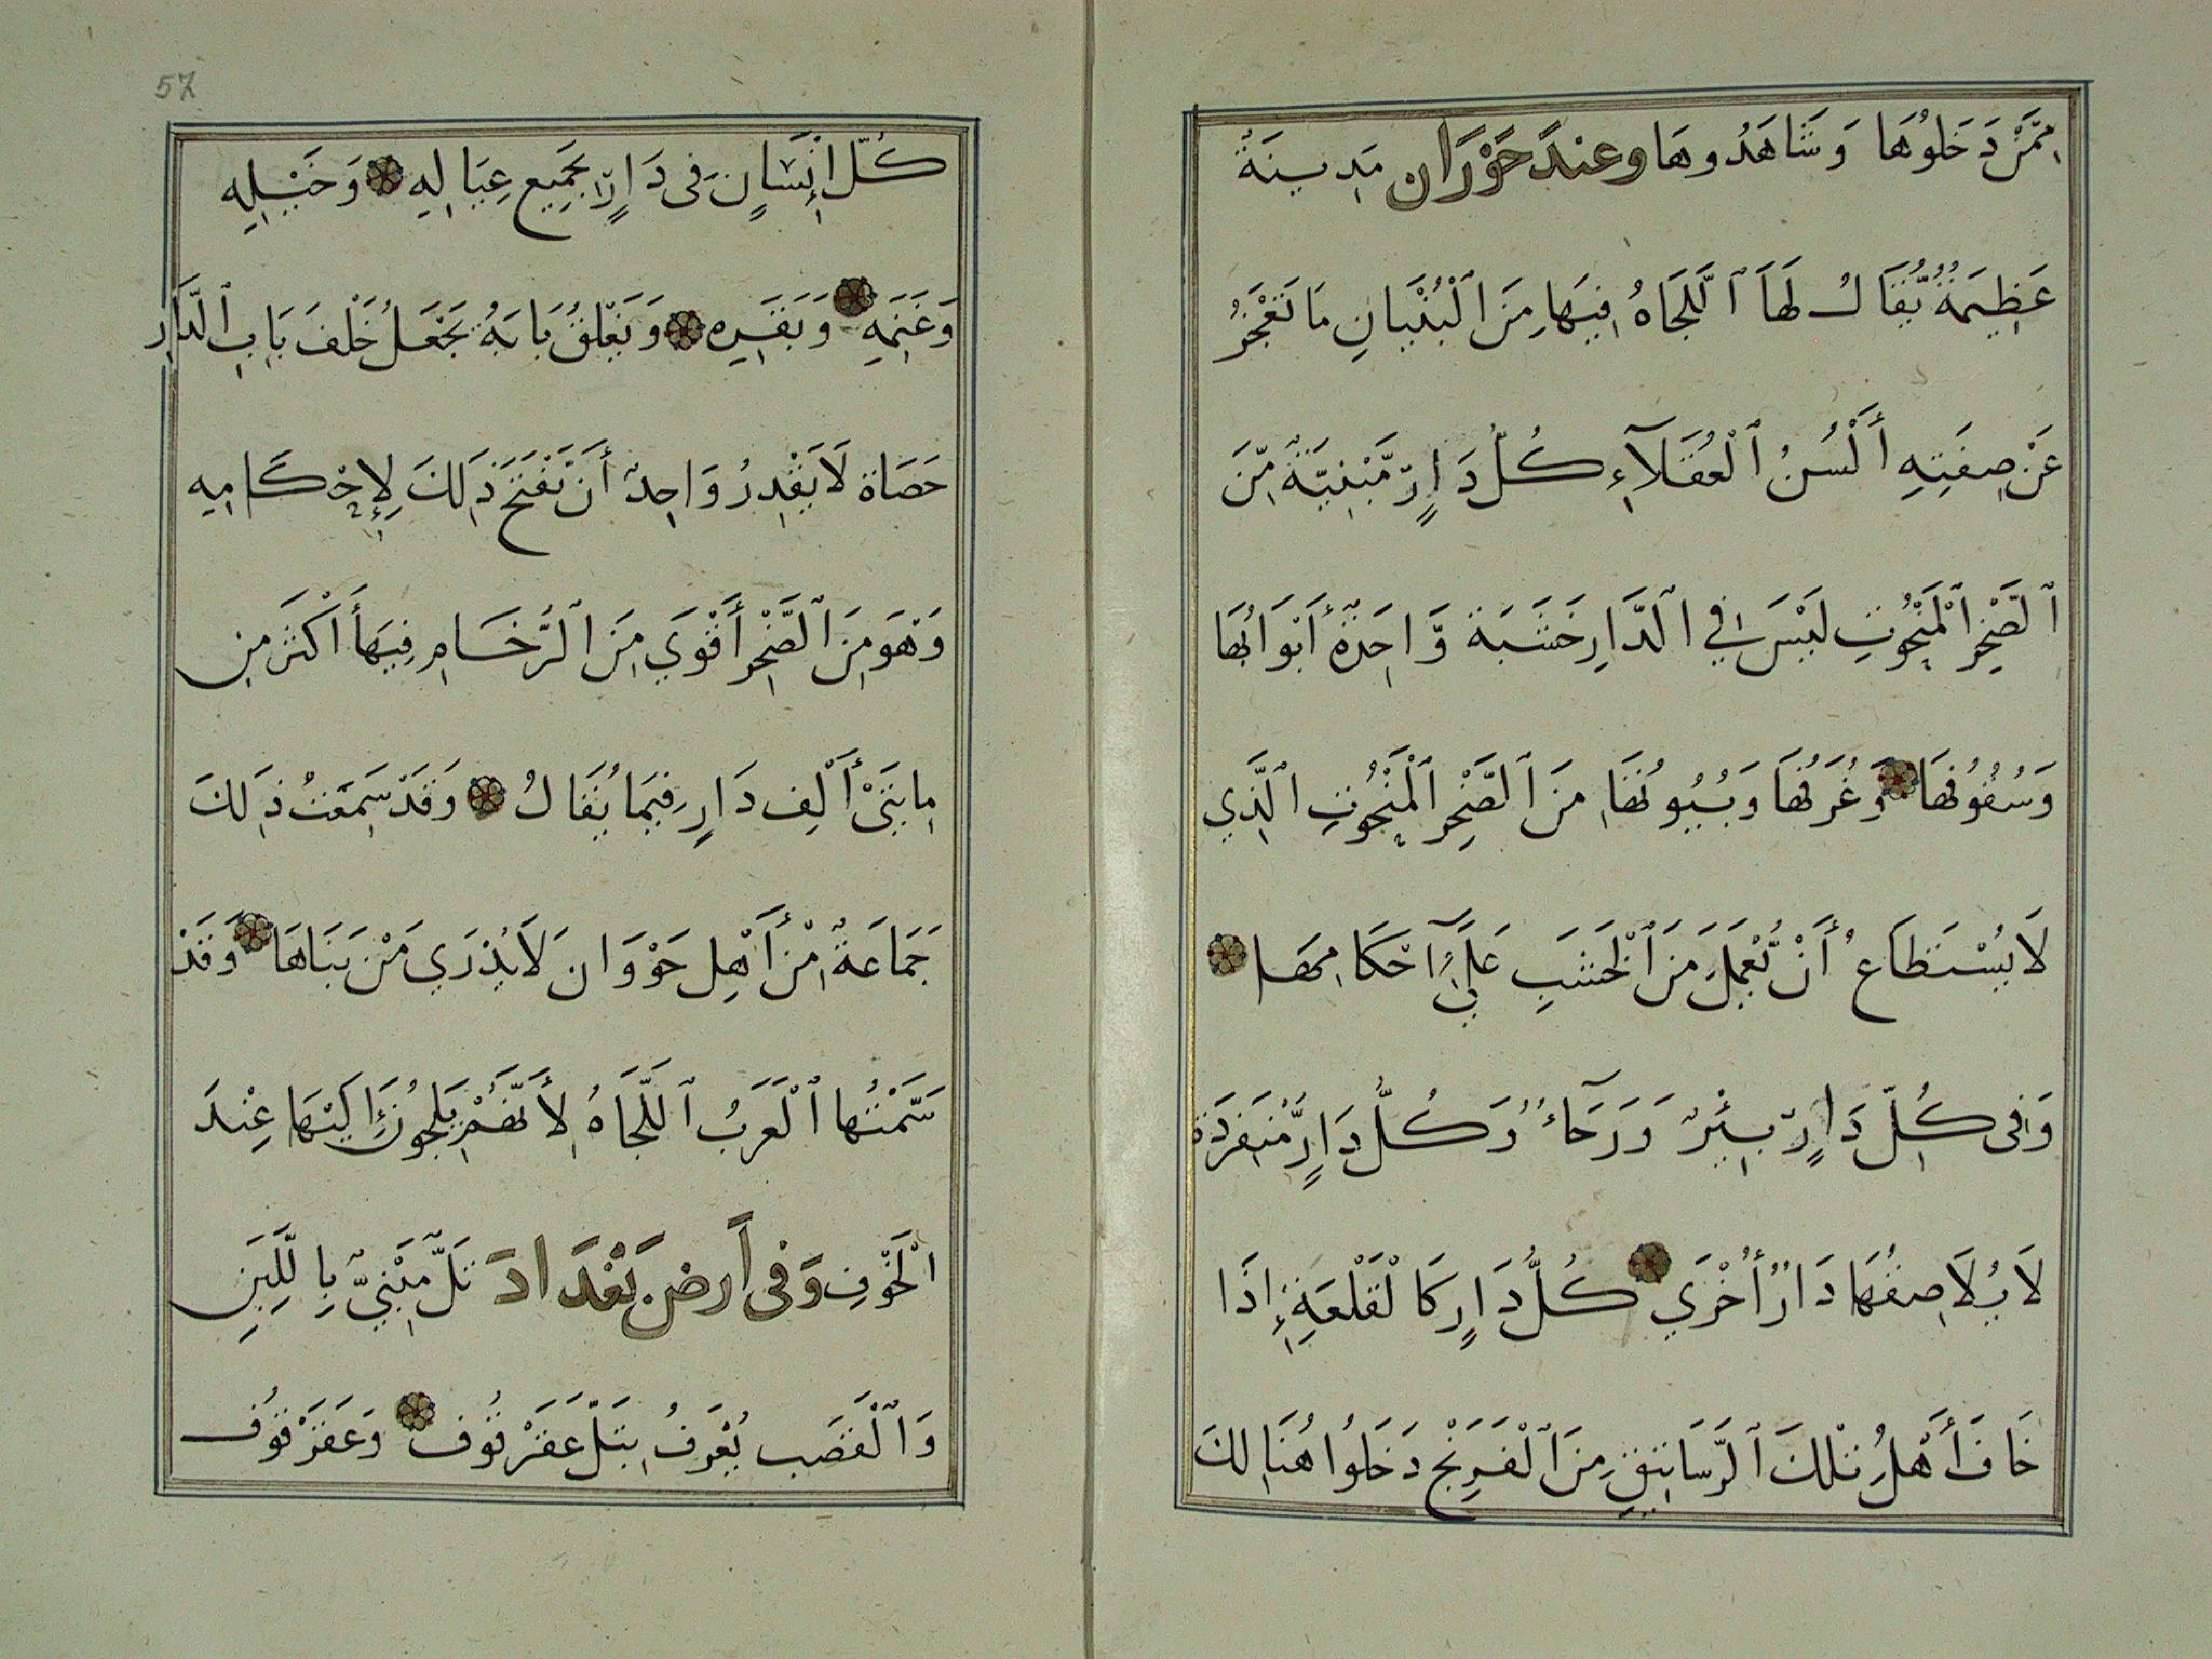 مِمَّنْ دَخَلُوهَا وَشَاهَدُوهَا وعندَ حَوْرَان مَدِينَةٌ
عَظِيمَةٌ يُقَالُ لَهَا ٱللَّجَاهُ فِيهَا مِنَ ٱلْبُنْيَانِ مَا تَعْجِزُ
عَنْ صِفَتِهِ أَلْسُنُ ٱلْعُقَلَآءِ كُلُّ دَارٍ مَّبْنِيَّةٌ مِّنَ
ٱلصَّخْرِ ٱلْمَنْحُوتِ لَيْسَ فِي ٱلدَّارِ خَشَبَة وَّاحِدَةٌ أَبْوَابُهَا
وَسُقُوفُهَا وَغُرَفُهَا وَبُيُوتُهَا مِنَ ٱلصَّخْرِ ٱلْمَنْحُوتِ ٱلَّذِي
لَا يُسْتَطَاعُ أَنْ يُّعْمَلَ مِنَ ٱلْخَشَبِ عَلَىٰٓ احْكَامِهَا
وَفِى كُلِّ دَارٍ بِئْرٌ وَرَحَاءٌ وَكُلُّ دَارٍ مُّنفَرِدَة
لَا يُلَاصِقُهَا دَارٌ أُخْرَي كُلُّ دَارٍ كَالْقَلْعَةِ إِذَا
خَافَ أَهْلُ تِلْكَ ٱلرَّسَاتِيقِ مِنَ ٱلْفَرَنْجِ دَخَلُوا هُنَالِكَ
57
كُلّ إِنْسَانٍ فِى دَارٍ بِجَمِيعِ عِيَالِهِ وَخَيْلِهِ
وَغَنَمِهِ وَبَقَرِه وَيَغْلِقُ بَابَهُ يَجْعَلُ خَلْفَ بَابِ ٱلدَّارِ
حَصَاة لَا يَقْدِرُ وَاحِدٌ أَن يَفْتَحَ ذَلِكَ لِإِحْكَامِهِ
وَهُوَ مِنَ ٱلصَّخْرِ أَقْوَي مِنَ ٱلرُّخَامِ فِيهَا أَكْثَرُ مِن
مِايتَىْ أَلْفِ دَارٍ فِيمَا يُقَالُ وَقَدْ سَمِعْتُ ذَلِكَ
جَمَاعَةٌ مِنْ أَهْلِ حَوْرَان لَا يُدْرَي مَنْ بَنَاهَا وَقَدْ
سَمَّتْهَا ٱلْعَرَبُ ٱللَّجَاهُ لِأَنَّهُمْ يَلْجُونَ إِلَيْهَا عِنْدَ
الْخَوْفِ وَفِى أَرض بَغْدَادَ تَلٌّ مَبْنِيٌّ بِاللَّبِنِ
وَٱلْقَصَبِ يُعْرَفُ بِتَلِّ عَقَرْقُوف وَعَقَرْقُوف